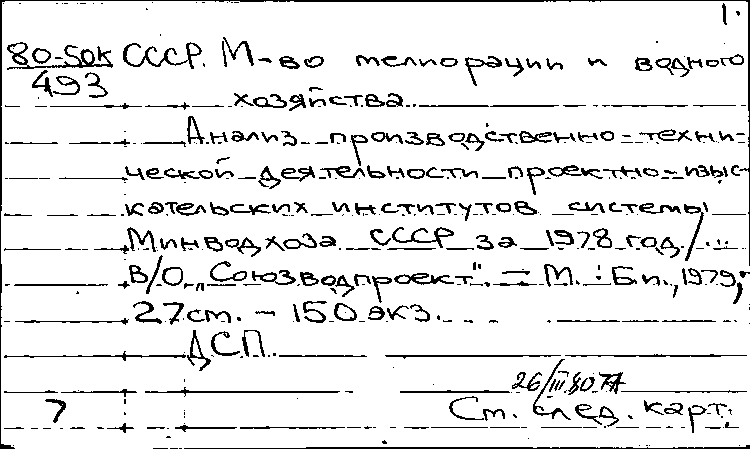 1.
80-50к СССР. М-во мелиорации и водного
493 хозяйства
Анализ производственно-техни-
ческой деятельности проектно-изыс-
кательских институтов системы
Минводхоза СССР за 1978 год/...
В/О „Союзводпроект". - М. : Б.и., 1979,
27 см. - 150 экз.
ДСП.
26/III 80
7 См. след. карт.